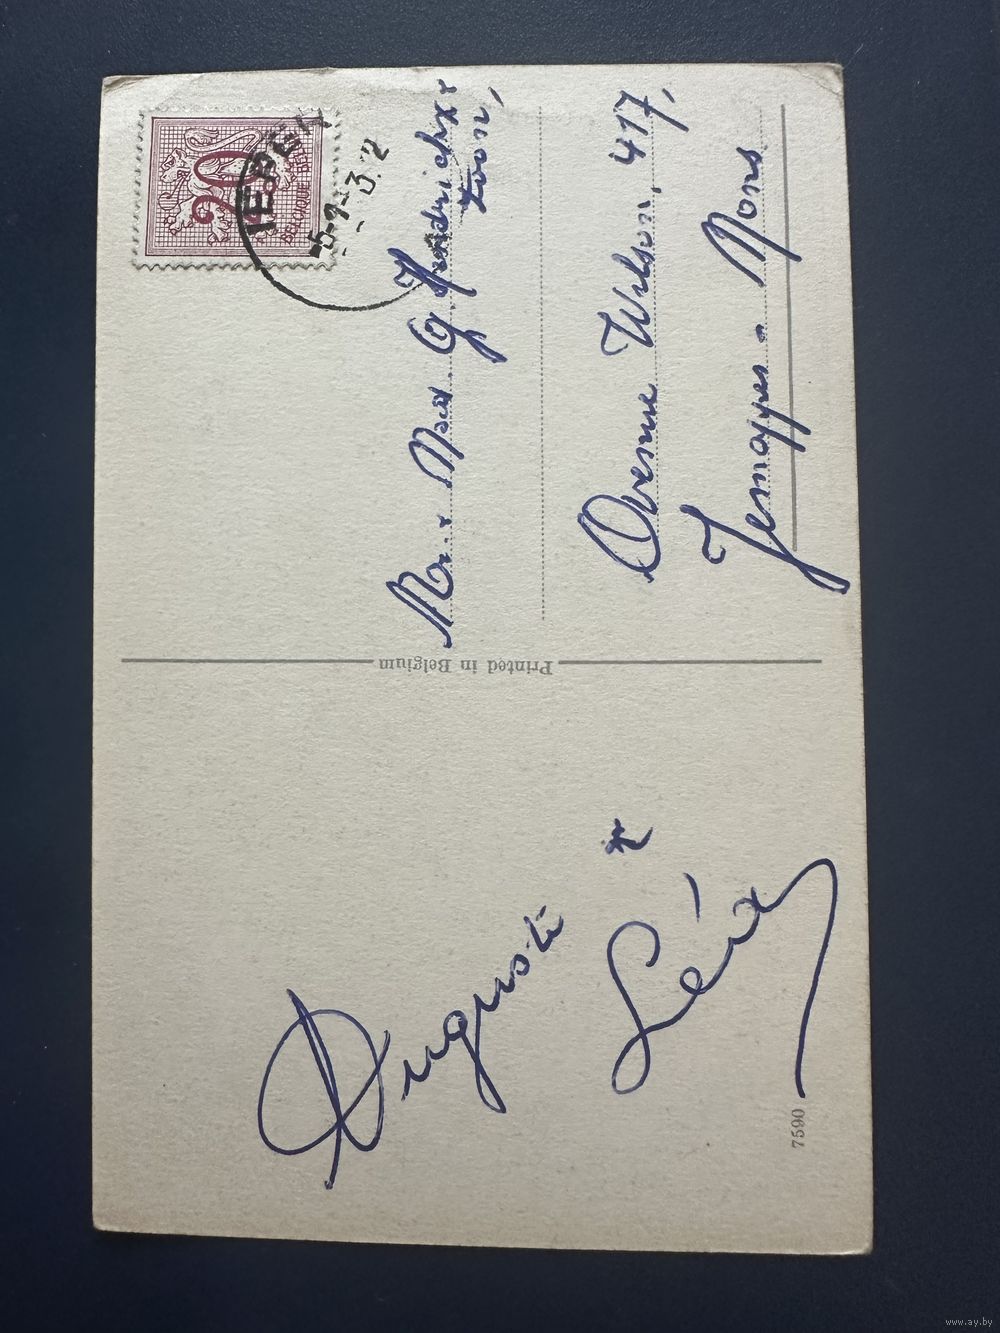 20
BELGIQUE BELGIE
IEPER
G. Hendrickx
zoon,
Avenue Wilson, 417,
Jemappes - Mons
Printed in Belgium
Auguste
Léa
7590
www.ay.by